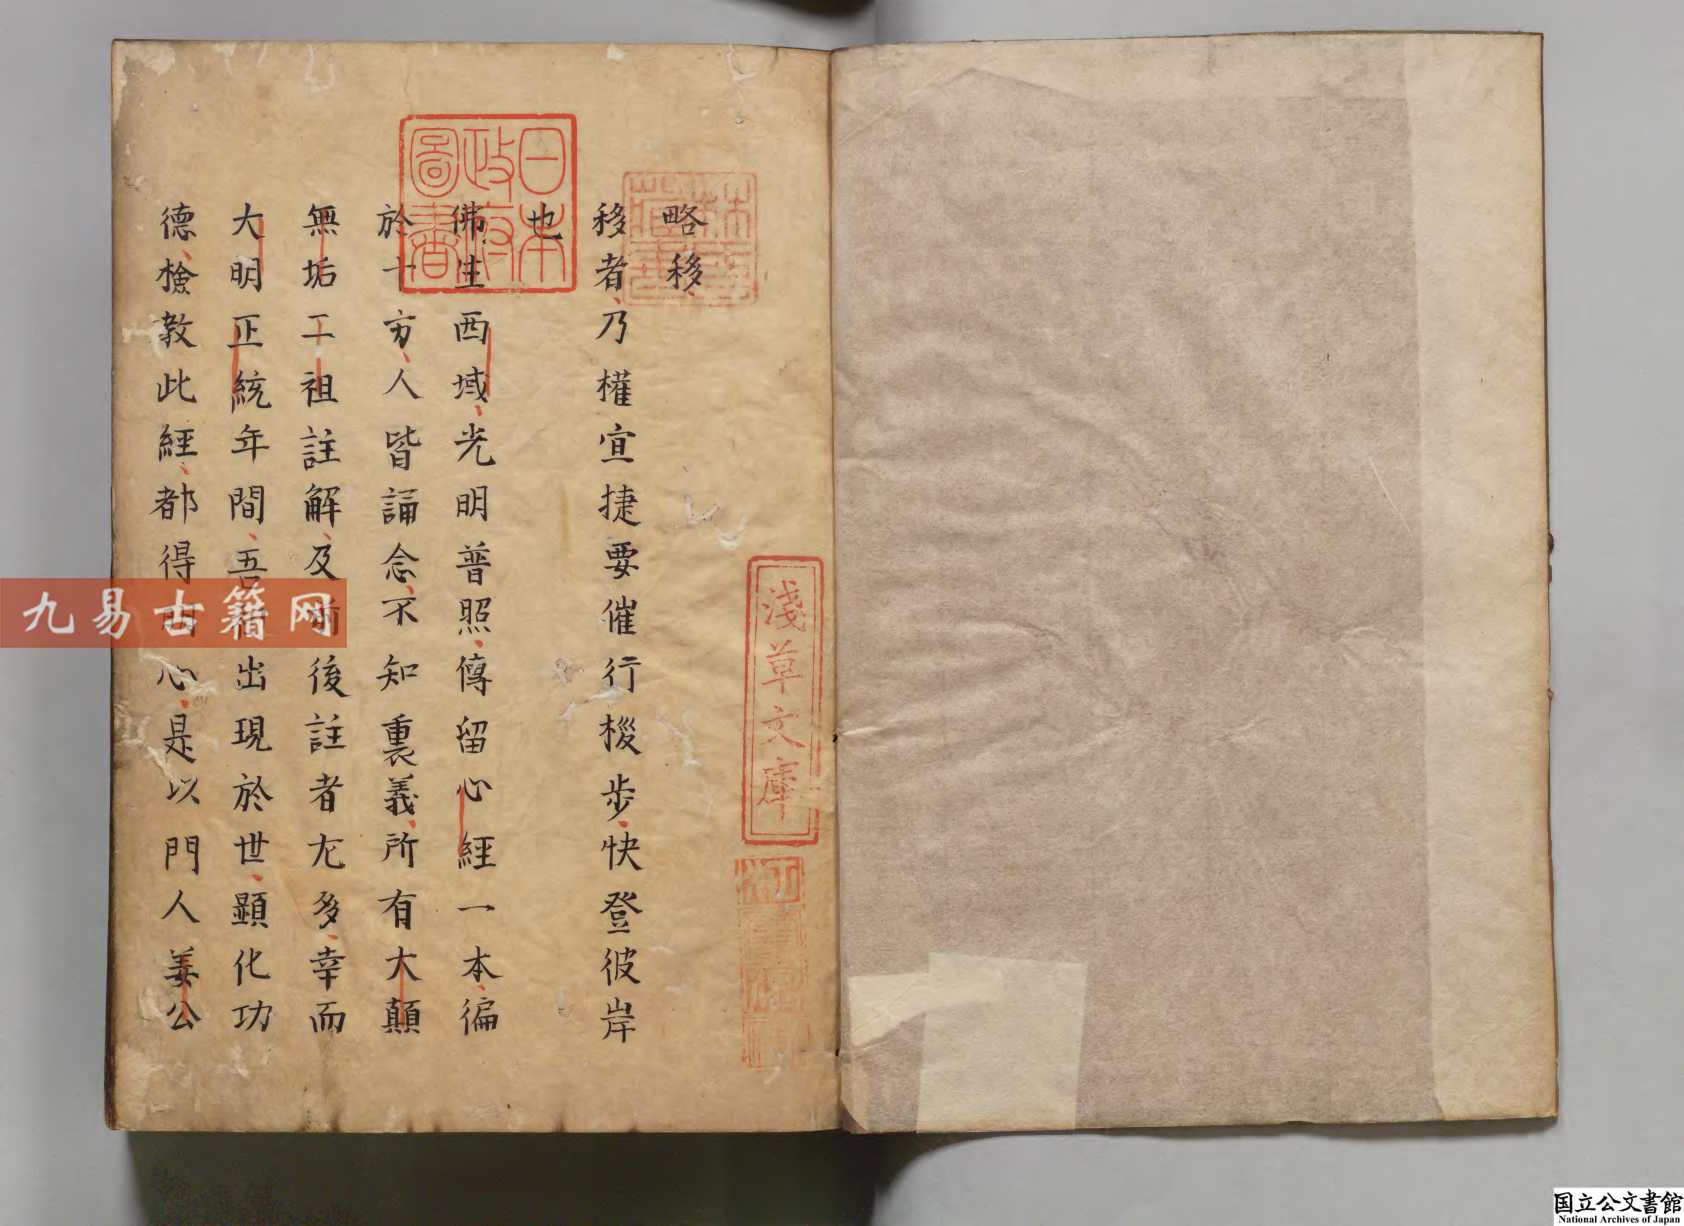 略移
移者乃權宜捷要催行梭步快登彼岸
也
佛生西域光明普照傳留心經一本徧
於十方人皆誦念不知裏義所有大顛
無垢二祖註解及前後註者尤多幸而
大明正統年間吾出現於世顯化功
德檢教此經都得明心是以門人姜公
日本政府圖書
林氏藏書
淺草文庫
九易古籍网
国立公文書館
National Archives of Japan